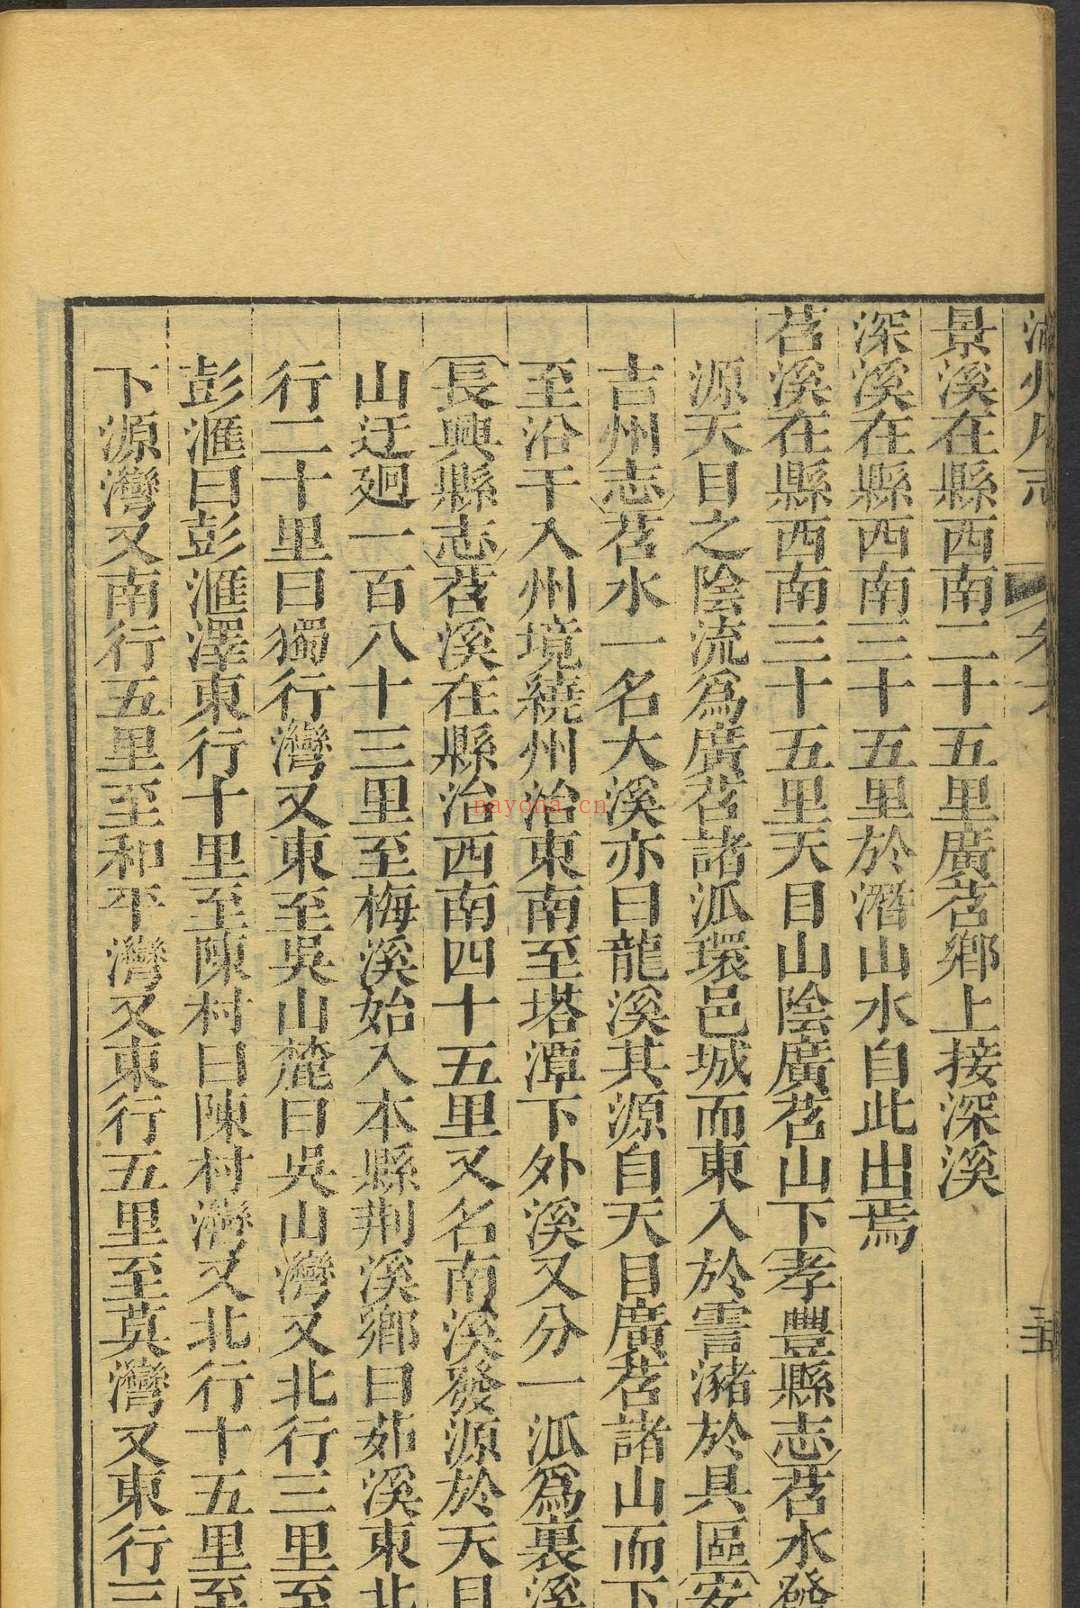 景溪在縣西南二十五里廣苕鄉上接深溪
深溪在縣西南三十五里於潛山水自此出焉
苕溪在縣西南三十五里天目山陰廣苕山下孝豐縣志苕水發
源天目之陰流爲廣苕諸泒環邑城而東入於霅瀦於具區安
吉州志苕水一名大溪亦曰龍溪其源自天目廣苕諸山而下
至沿干入州境繞州治東南至塔潭下外溪又分一泒爲裏溪
長興縣志苕溪在縣治西南四十五里又名南溪發源於天目
山迂廻一百八十三里至梅溪始入本縣荆溪鄉曰茆溪東北
行二十里曰獨行灣又東至吳山麓曰吳山灣又北行三里至
彭滙曰彭滙澤東行十里至陳村曰陳村灣又北行十五里至
下源灣又南行五里至和平灣又東行五里至莫灣又東行三
nayona.cn